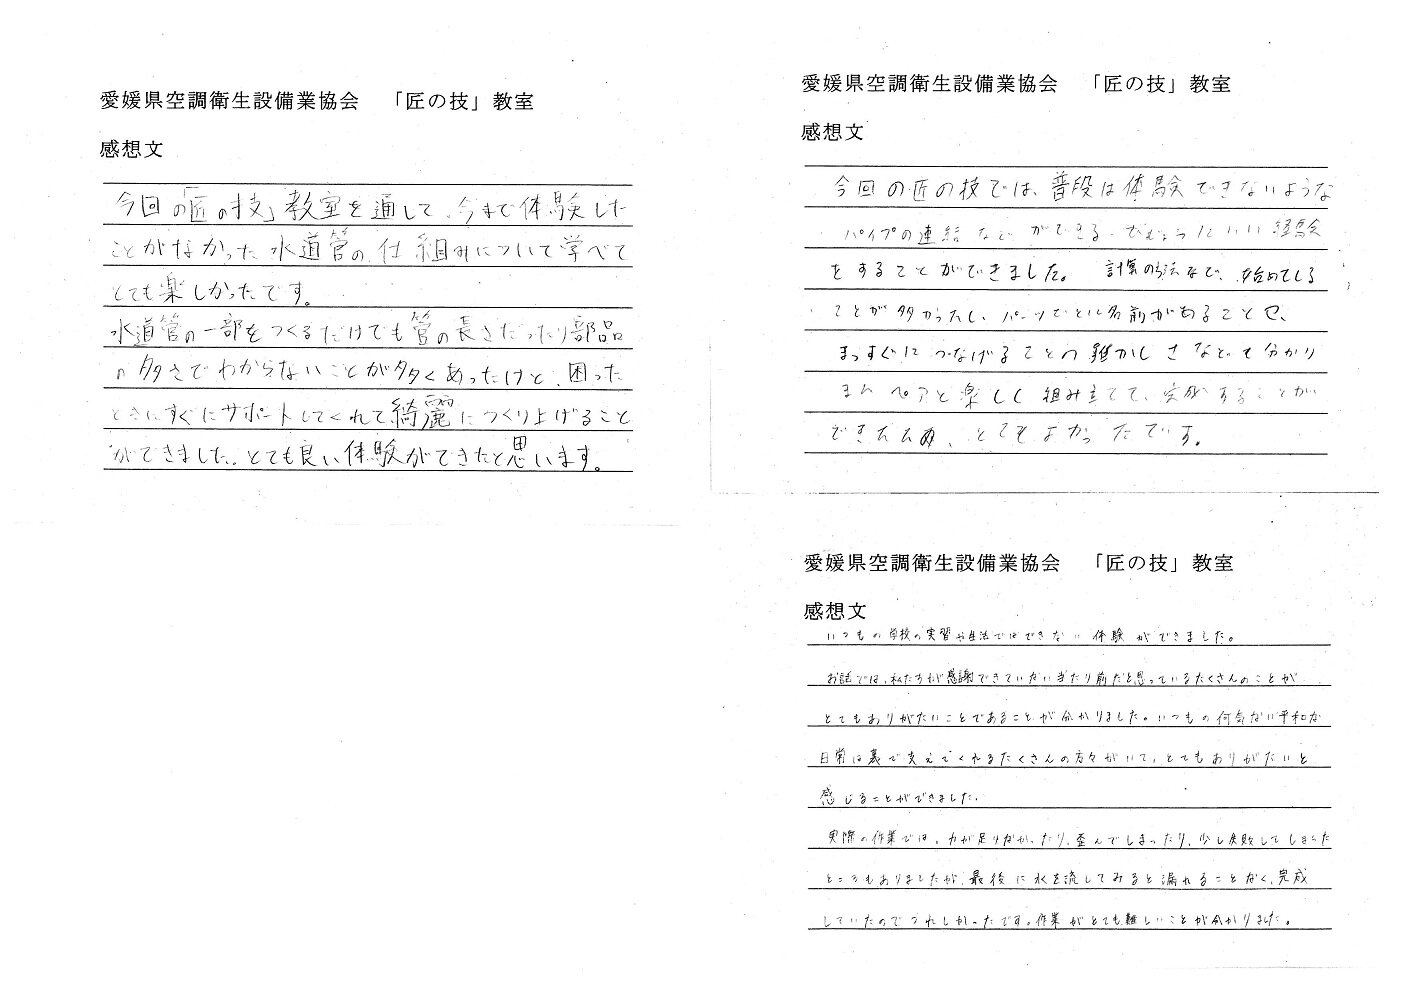 愛媛県空調衛生設備業協会　「匠の技」教室
感想文
今回の「匠の技」教室を通して、今まで体験した
ことがなかった水道管の仕組みについて学べて
とても楽しかったです。
水道管の一部をつくるだけでも管の長さだったり部品
の多さでわからないことが多くあったけど、困った
ときにすぐにサポートしてくれて綺麗につくり上げること
ができました。とても良い体験ができたと思います。
愛媛県空調衛生設備業協会　「匠の技」教室
感想文
今回の匠の技では、普段は体験できないような
パイプの連結などができる いい経験
をすることができました。 計算の方法など、始めてしる
ことが多かったし、パーツごとに名前があることや、
まっすぐにつなげることの難かしさなども分かり
ペアと楽しく組み立てて、完成することが
できたため、とてもよかったです。
愛媛県空調衛生設備業協会　「匠の技」教室
感想文
いつもの学校の実習や生活ではできない体験ができました。
お話では、私たちが感謝できていない当たり前だと思っているたくさんのことが
とてもありがたいことであることが分かりました。いつもの何気ない平和な
日常は裏で支えてくれるたくさんの方々がいて、とてもありがたいと
感じることができました。
実際の作業では、力が足りなかったり、歪んでしまったり、少し失敗してしまった
ところもありましたが、最後に水を流してみると漏れることなく、完成
していたのでうれしかったです。作業がとても難しいことが分かりました。